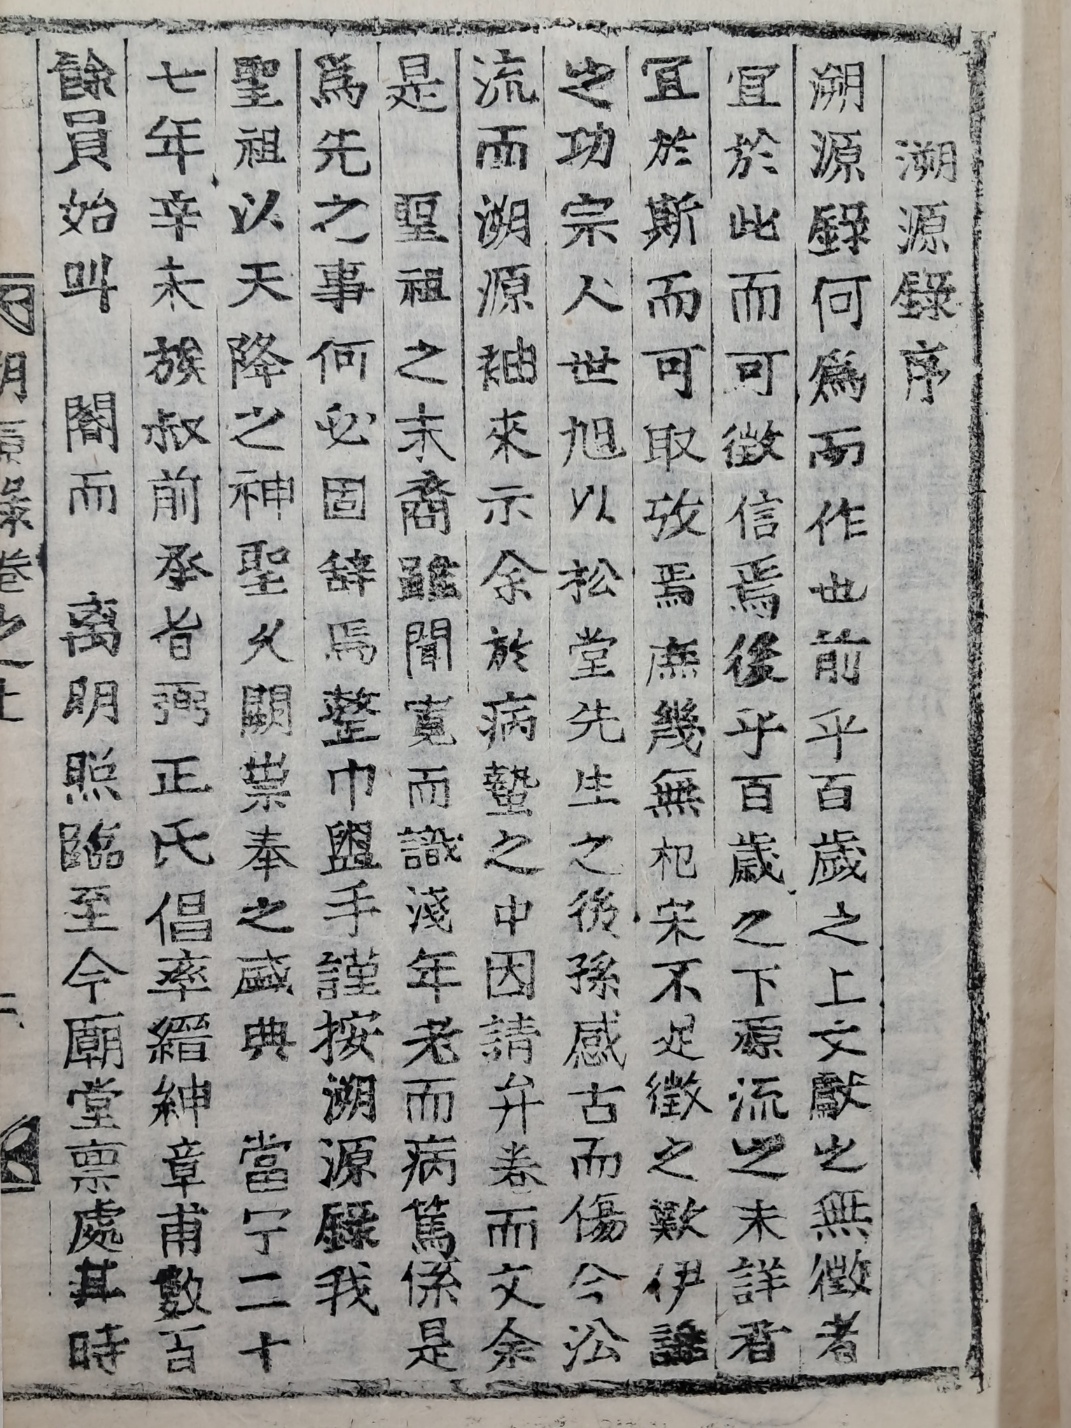 溯源錄序
溯源錄何爲而作也前乎百歲之上文獻之無徵者
宜於此而可徵信焉後乎百歲之下源流之未詳者
宜於斯而可取攷焉庶幾無杞宋不足徵之歎伊誰
之功宗人世旭以松堂先生之後孫感古而傷今沿
流而溯源袖來示余於病蟄之中因請弁卷而文余
是 聖祖之末裔雖聞寬而識淺年老而病篤係是
爲先之事何必固辭焉整巾盥手謹按溯源錄我
聖祖以天降之神聖久闕崇奉之盛典 當宁二十
七年辛未族叔前承旨弼正氏倡率縉紳章甫數百
餘員始叫 閤而 离明照臨至今廟堂稟處其時
溯源錄卷之上